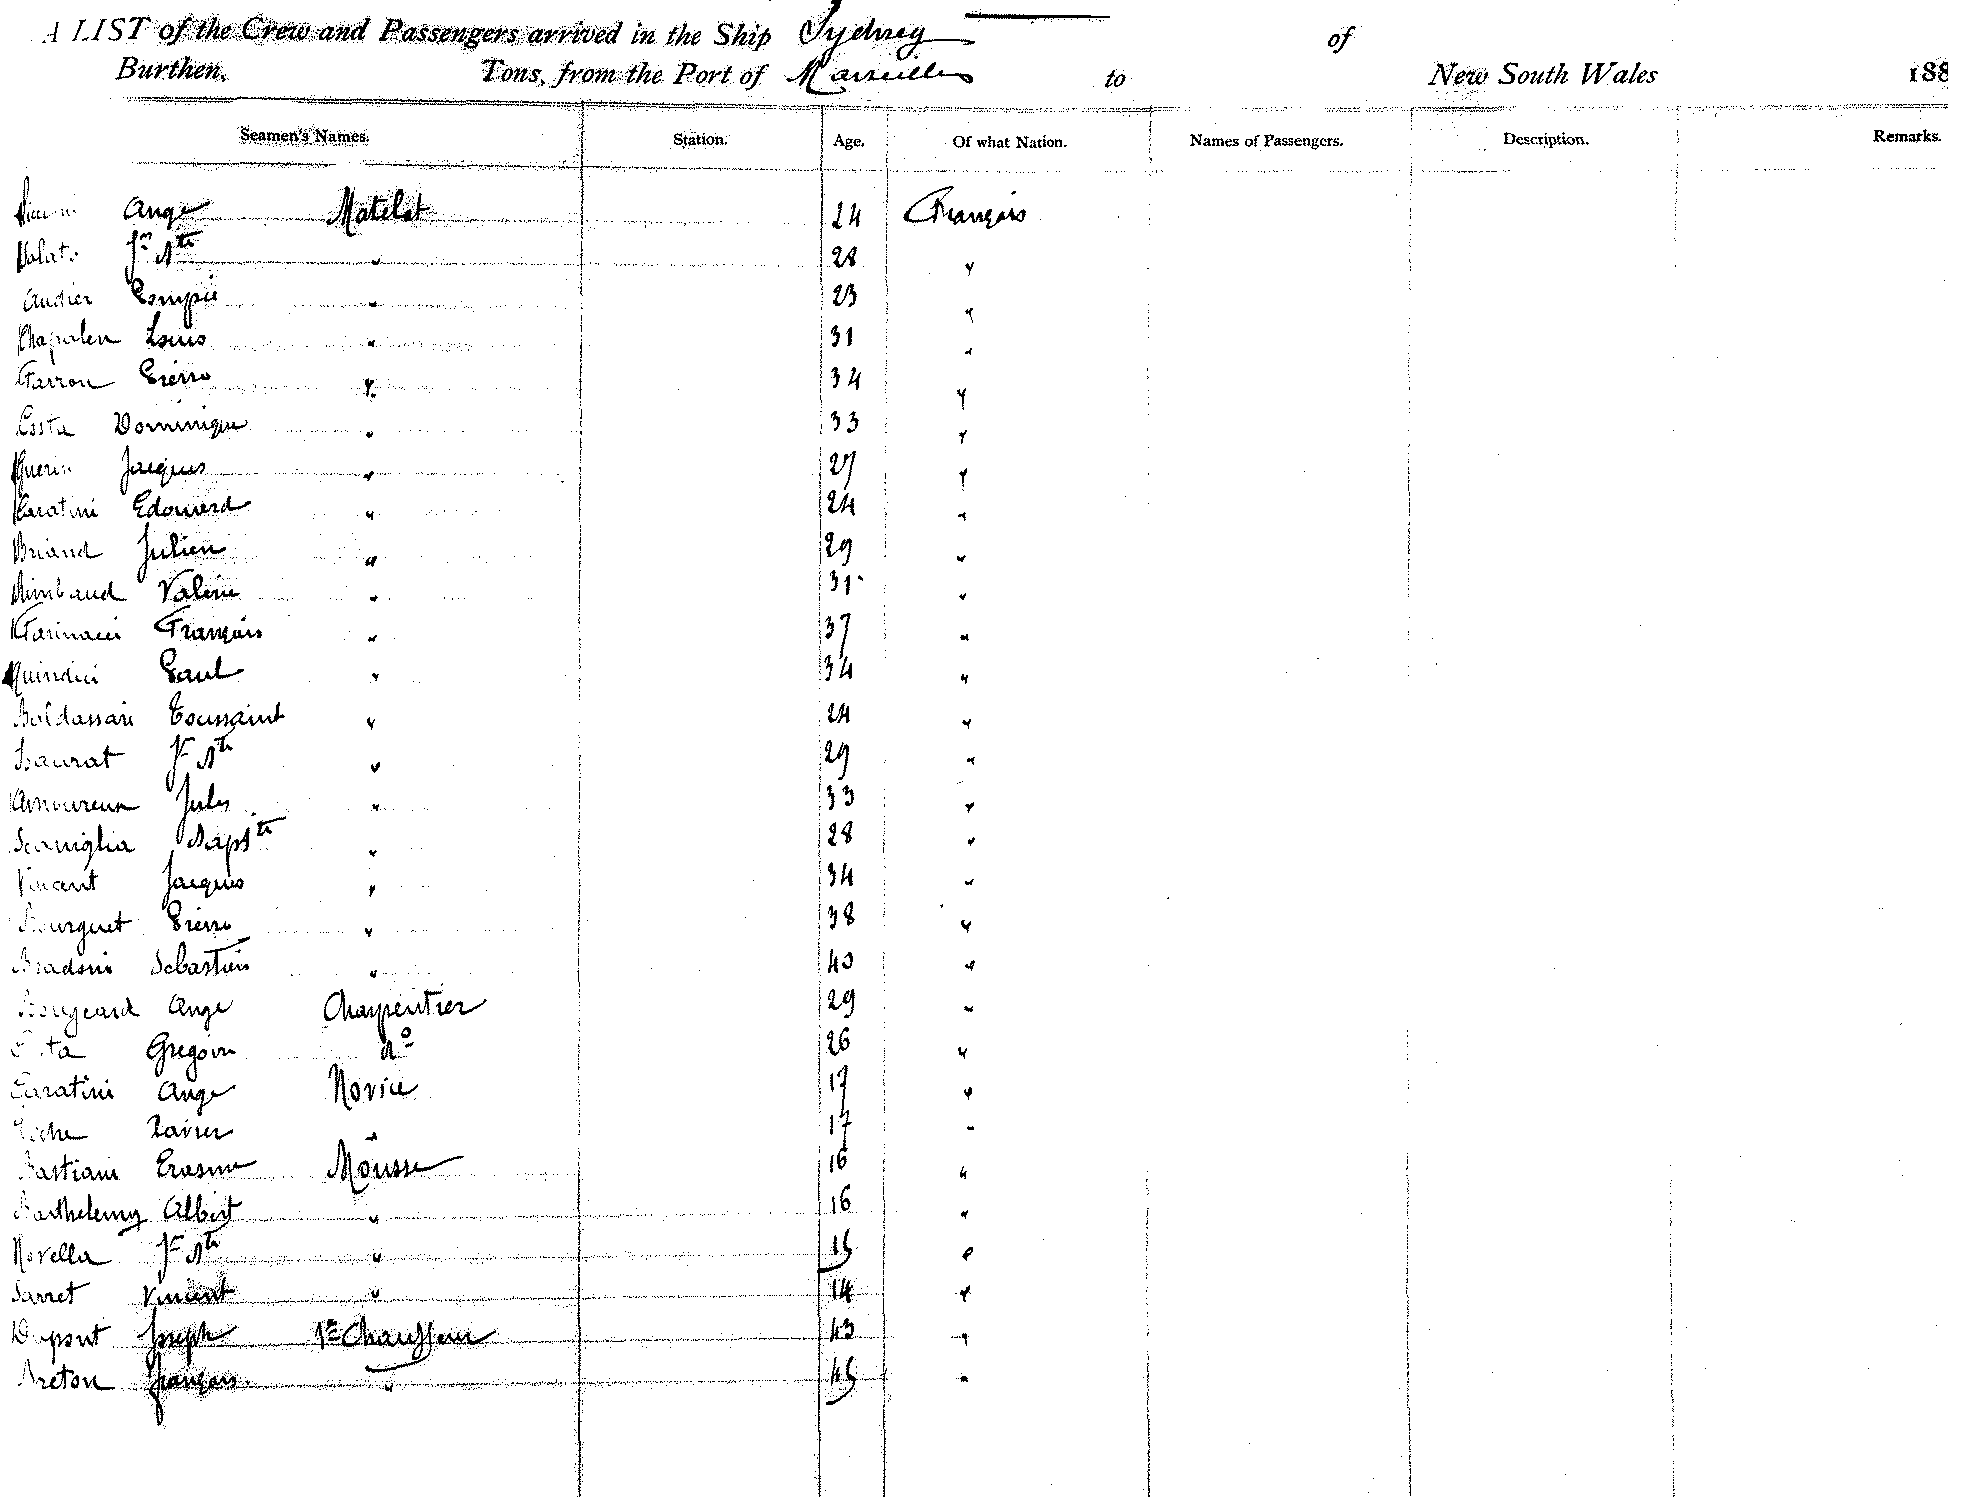 A LIST of the Crew and Passengers arrived in the Ship Sydney of
Burthen, Tons, from the Port of Marseilles to New South Wales 188
Seamen's Names. Station. Age. Of what Nation. Names of Passengers. Description. Remarks.
Ange Matelot 24 Français
Jn Bte " 28 "
Audier 23 "
Chapalen Louis " 31 "
Garron Pierre " 34 "
Costa Dominique " 33 "
Guerin Jacques " 27 "
Caratini Edouard " 24 "
Briand Julien " 29 "
Rimbaud Valérie " 31 "
Farinacci François " 37 "
Quindici Paul " 34 "
Baldassari Toussaint " 24 "
Laurat Jn Bte " 29 "
Amoureux Jules " 33 "
Scaniglia Bapte " 28 "
Vincent Jacques " 34 "
Bourguet Pierre " 38 "
Sebastien " 40 "
Bougeard Ange Charpentier 29 "
Gregoire do 26 "
Caratini Ange Novice 17 "
Xavier " 17 "
Bastiani Erasme Mousse 16 "
Barthelemy Albert " 16 "
Novella Jn Bte " 15 "
Sarret Vincent " 14 "
Dupont Joseph 1er Chauffeur 43 "
Breton François " 45 "